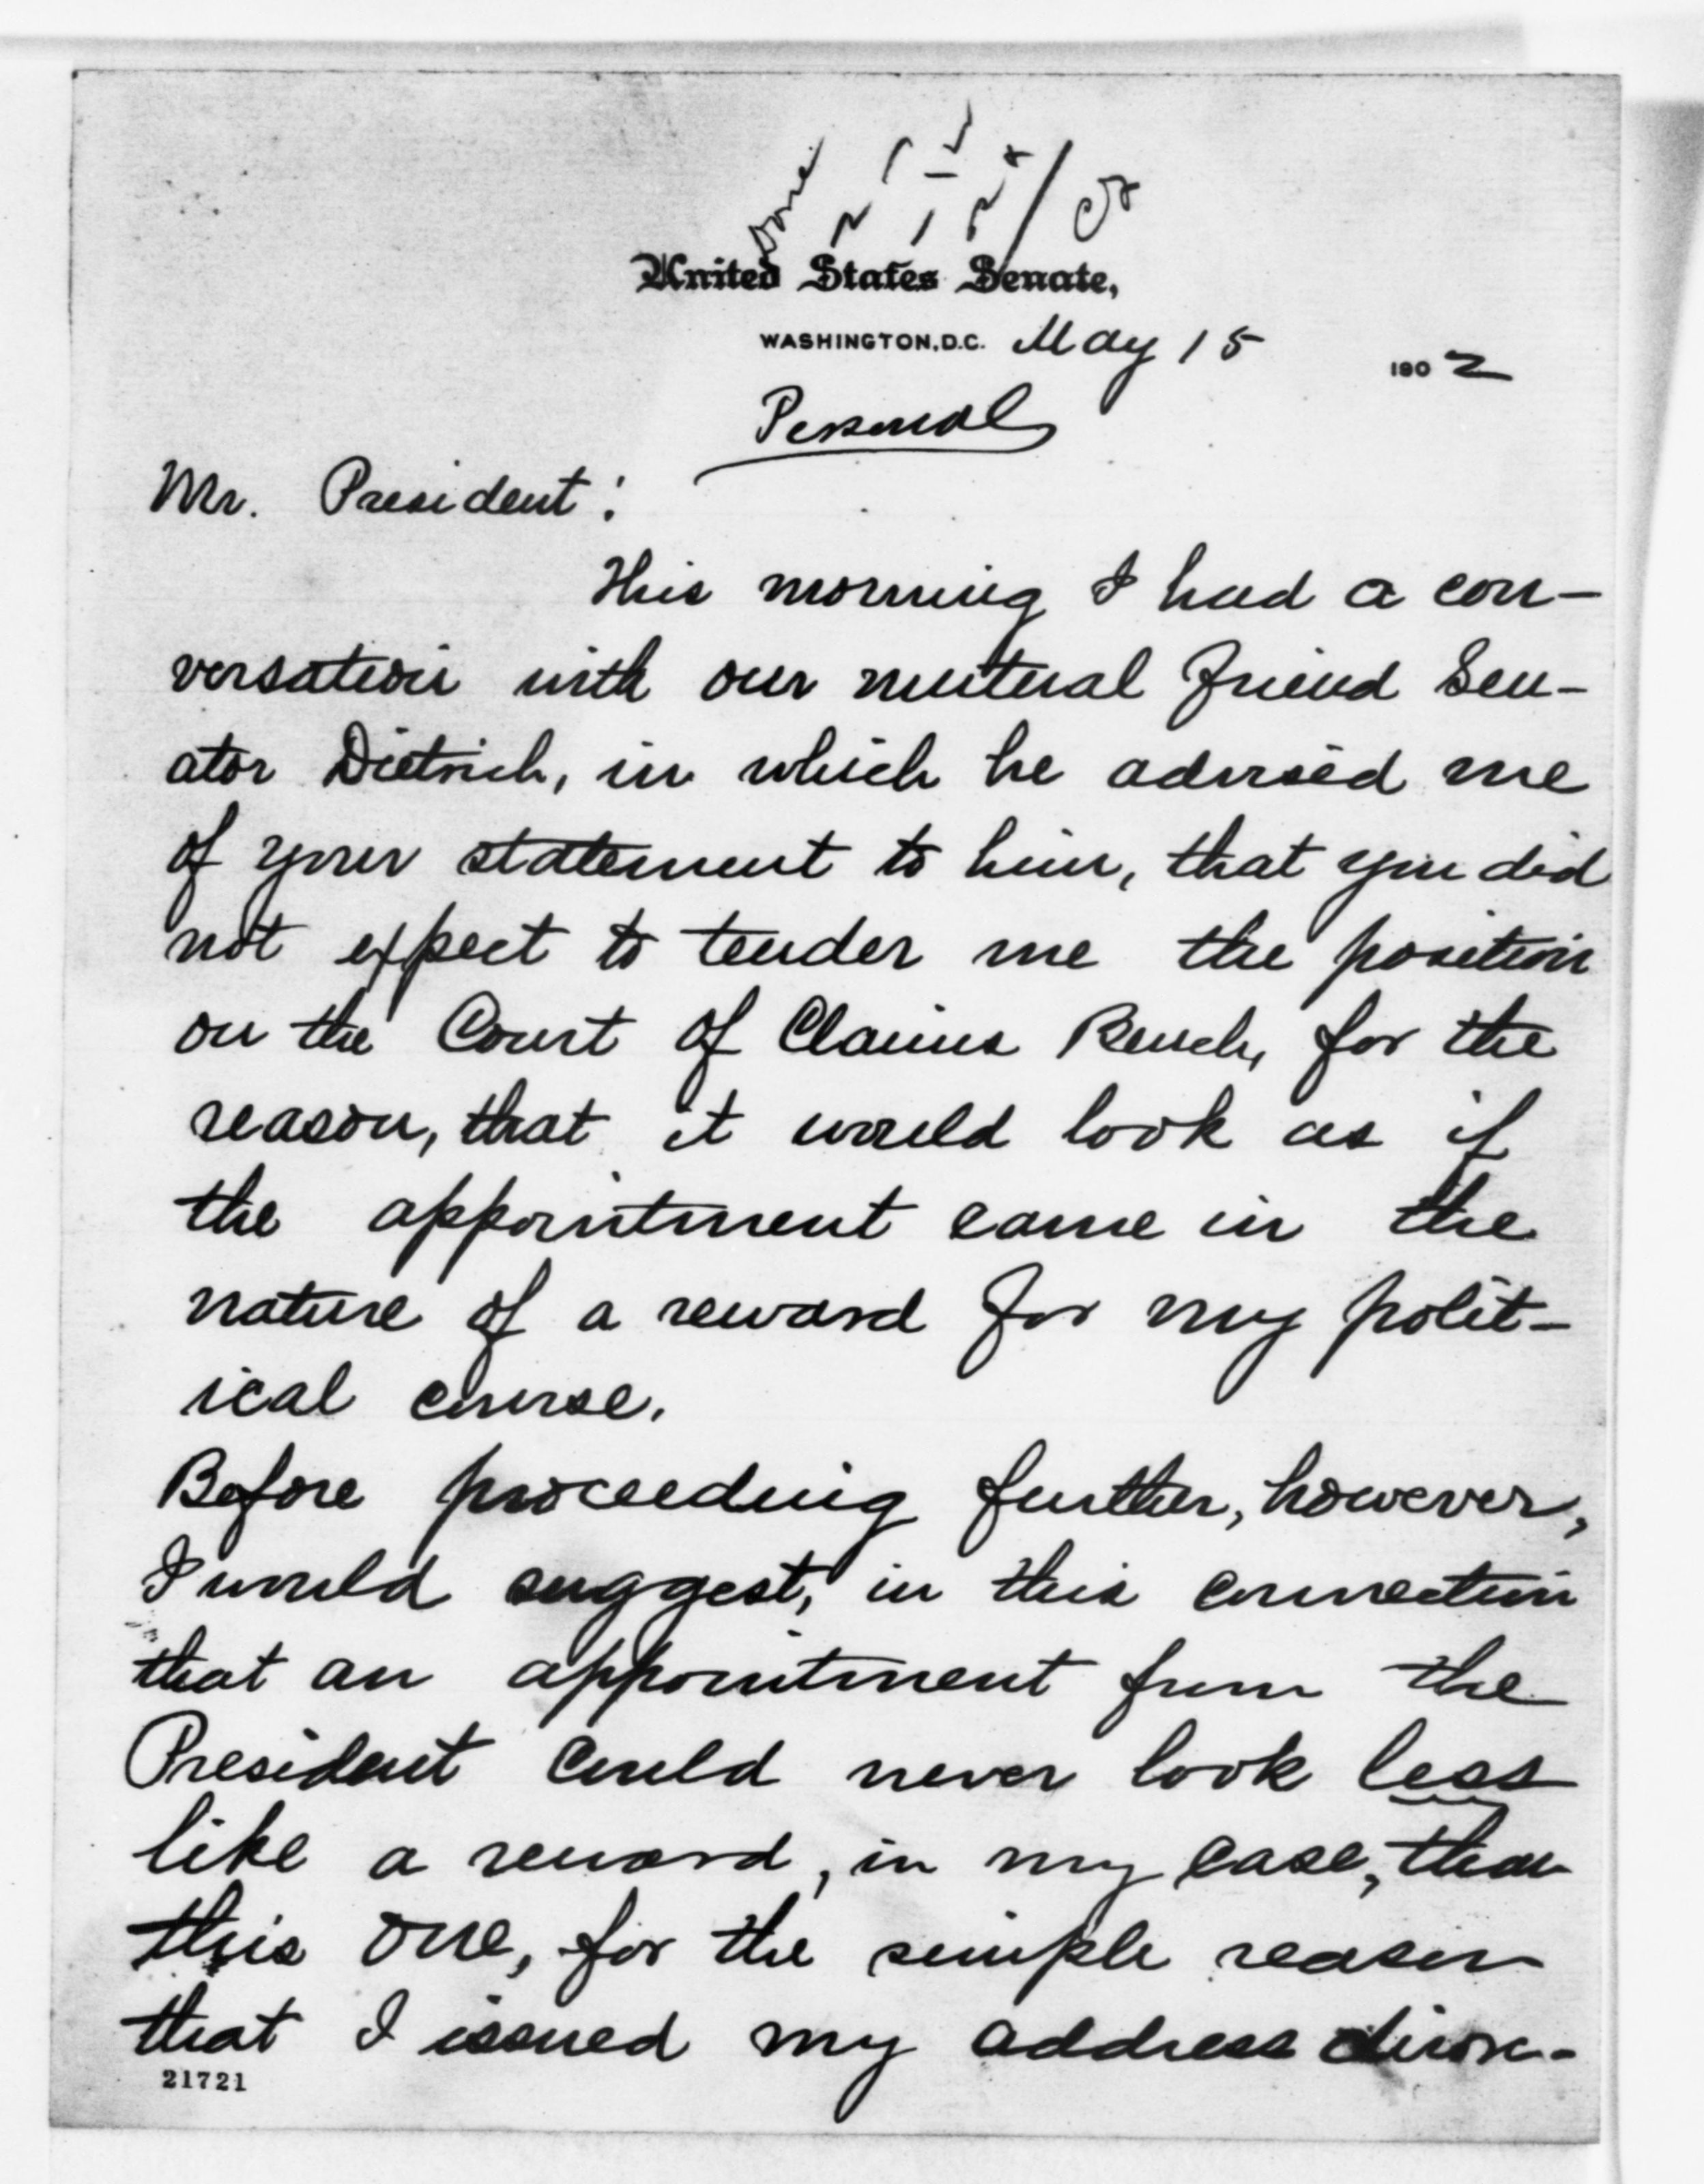 done
United States Senate,
WASHINGTON, D.C. May 15 1902
Personal
Mr. President:
This morning I had a con-
versation with our mutual friend Sen-
ator Dietrich, in which he advised me
of your statement to him, that you did
not expect to tender me the position
on the Court of Claims Bench, for the
reason, that it would look as if
the appointment came in the
nature of a reward for my polit-
ical course.
Before proceeding further, however,
I would suggest, in this connection
that an appointment from the
President could never look less
like a reward, in my case, than
this one, for the simple reason
that I issued my address
21721